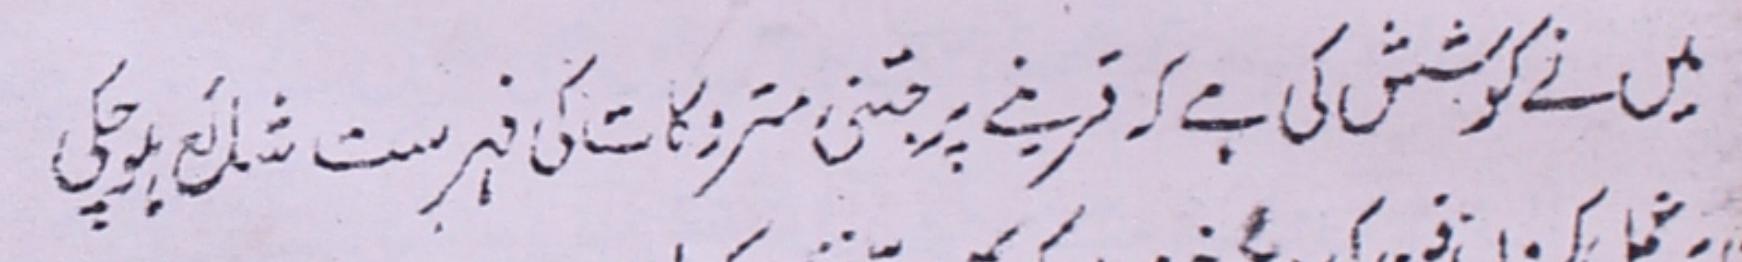 میں نے کوشش کی ہے کہ قرینے پر جتنی متروکات کی فہرست شائع ہوچکی